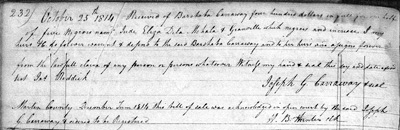 232 October 25th 1814 Received of Barshaba Carraway four hundred dollars in full for
of five Negroes named Jude Eliza Dela Mahala & Granville which negroes and increase I
here to do forever warrant & defend to the said Barshaba Carraway and her heirs and assigns forever
from the lawfull claim of any person or persons whatever Witness my hand and seal the day and date above
test Jat Maddick
Joseph G Carraway & seal
Martin County December Term 1814 this bill of sale was acknowledged in open court by the said Joseph
G Carraway & ordered to be Registered